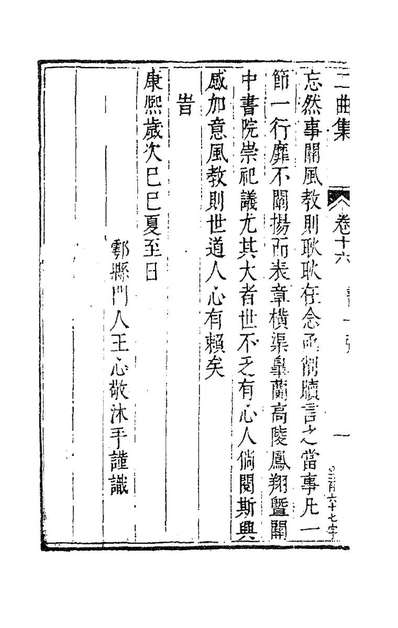 二曲集 卷十六 一
忘然事關風教則耿耿在念亟削牘言之當事凡一
節一行靡不闡揚而表章橫渠臯蘭高陵鳳翔暨關
中書院崇祀議尤其大者世不乏有心人倘閱斯興
感加意風教則世道人心有賴矣
旹
康熙歲次巳巳夏至日
鄠縣門人王心敬沐手謹識